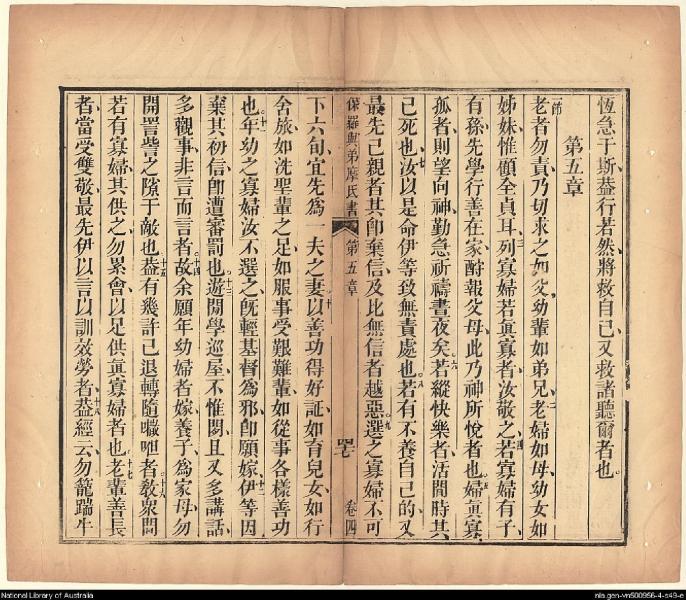 恆急于斯葢行若然將救自己又救諸聽爾者也
第五章
節老者勿責乃切求之如父幼輩如弟兄二老婦如母幼女如
姊妹惟願全貞耳三列寡婦若眞寡者汝敬之四若寡婦有子
有孫先學行善在家酧報父母此乃神所悅者也五婦眞寡
孤者則望向神勤急祈禱晝夜矣六若縱快樂者活間時其
己死也七汝以是命伊等致無責處也八若有不養自己的又
最先己親者其卽棄信及比無信者越惡九選之寡婦不可
保羅與弟摩氏書 第五章 卷四
下六旬宜先爲一夫之妻十以善功得好証如育兒女如行
舍旅如洗聖輩之足如服事受艱難輩如從事各樣善功
也十一年幼之寡婦汝不選之旣輕基督爲邪卽願嫁十二伊等因
棄其初信卽遭審罰也十三遊閒學巡屋不惟閒且又多講話
多觀事非言而言者十四故余願年幼婦者嫁養子爲家母勿
開詈訾之隙于敵也十五葢有幾許己退轉隨者十六敎衆間
若有寡婦其供之勿累會以足供眞寡婦者也十七老輩善長
者當受雙敬最先伊以言以訓效勞者十八葢經云勿籠踹牛
National Library of Australia
nla.gen-vn500956-4-s49-e